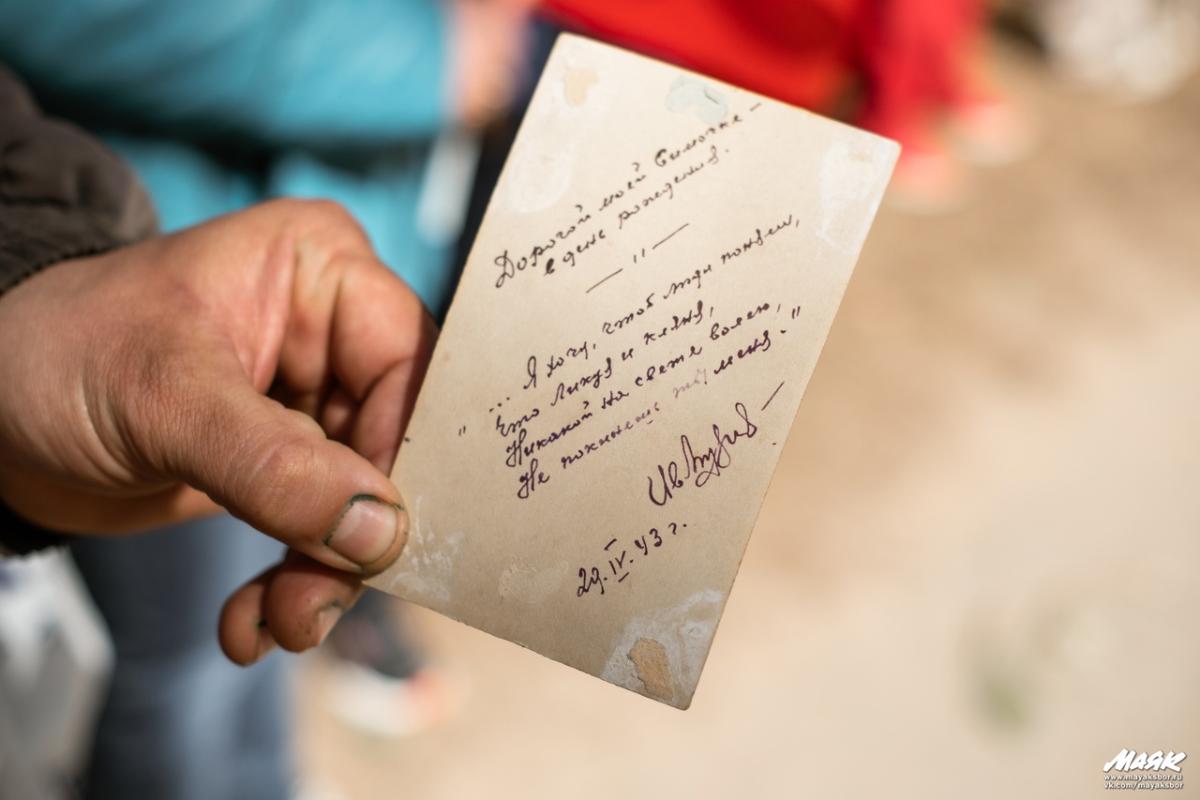 Дорогой моей Симочке –
в день рождения.
— " —
"... Я хочу, чтоб люди поняли,
Что ликуя и кляня,
Никакой на свете волею,
Не покинешь ты меня."
29.IV.43 г.
МАЯК
www.mayaksbor.ru
vk.com/mayaksbor